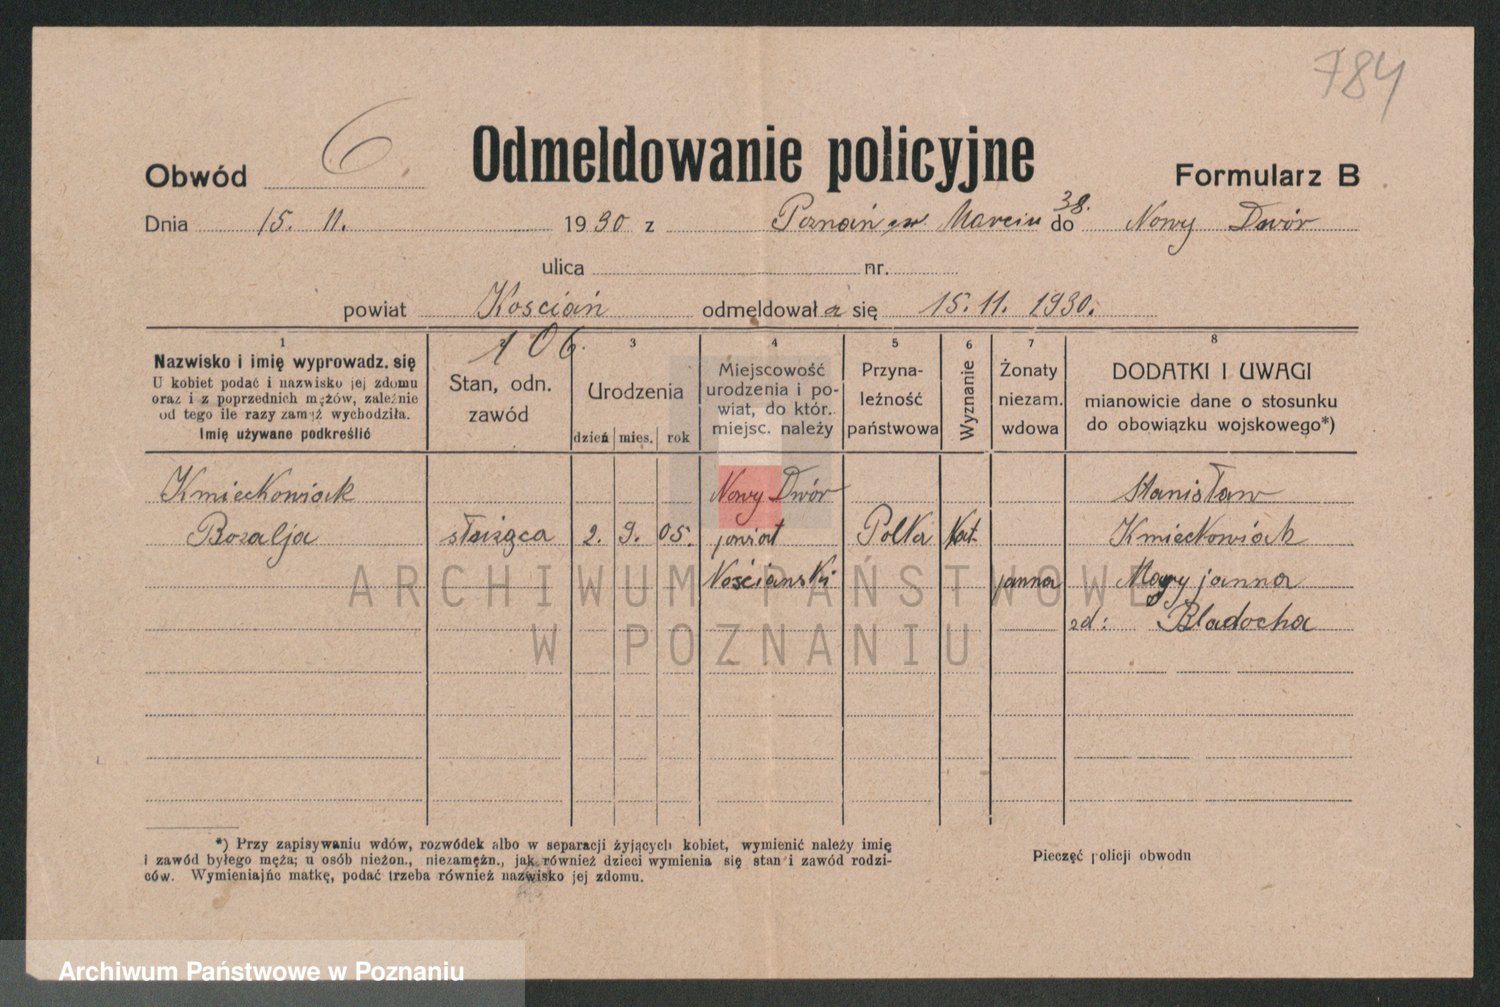 784
Obwód 6. Odmeldowanie policyjne Formularz B
Dnia 15. 11. 1930 z Poznań św Marcin 38. do Nowy Dwór
ulica nr.
powiat Kościań odmeldował a się 15. 11. 1930.
106.
1 3 4 5 6 7 8
Nazwisko i imię wyprowadz. się
U kobiet podać i nazwisko jej zdomu
oraz i z poprzednich mężów, zależnie
od tego ile razy zamąż wychodziła.
Imię używane podkreślić
Stan, odn.
zawód
Urodzenia
dzień mies. rok
Miejscowość
urodzenia i po-
wiat, do któr.
miejsc. należy
Przyna-
leżność
państwowa
Wyznanie
Żonaty
niezam.
wdowa
DODATKI I UWAGI
mianowicie dane o stosunku
do obowiązku wojskowego*)
Kmieckowiak Nowy Dwór Stanisław
Rozalja służąca 2. 9. 05. powiat Polka Kat. Kmieckowiak
Kościański panna Maryjanna
zd: Bladocha
ARCHIWUM PAŃSTWOWE
W POZNANIU
*) Przy zapisywaniu wdów, rozwódek albo w separacji żyjących kobiet, wymienić należy imię
i zawód byłego męża; u osób nieżon., niezamężn., jak również dzieci wymienia się stan i zawód rodzi-
ców. Wymieniajńc matkę, podać trzeba również nazwisko jej zdomu.
Pieczęć policji obwodu
Archiwum Państwowe w Poznaniu